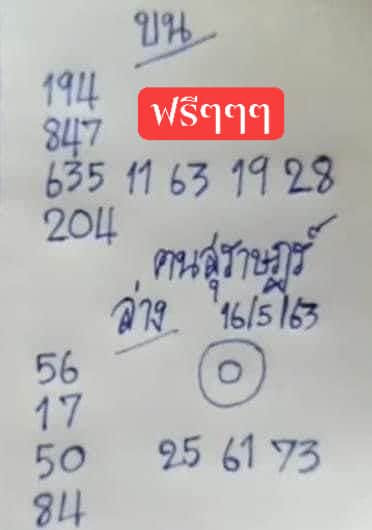 บน
194
ฟรีๆๆๆ
847
635 11 63 19 28
204
คนสุราษฎร์
ล่าง 16/5/63
56
0
17
50 25 61 73
84